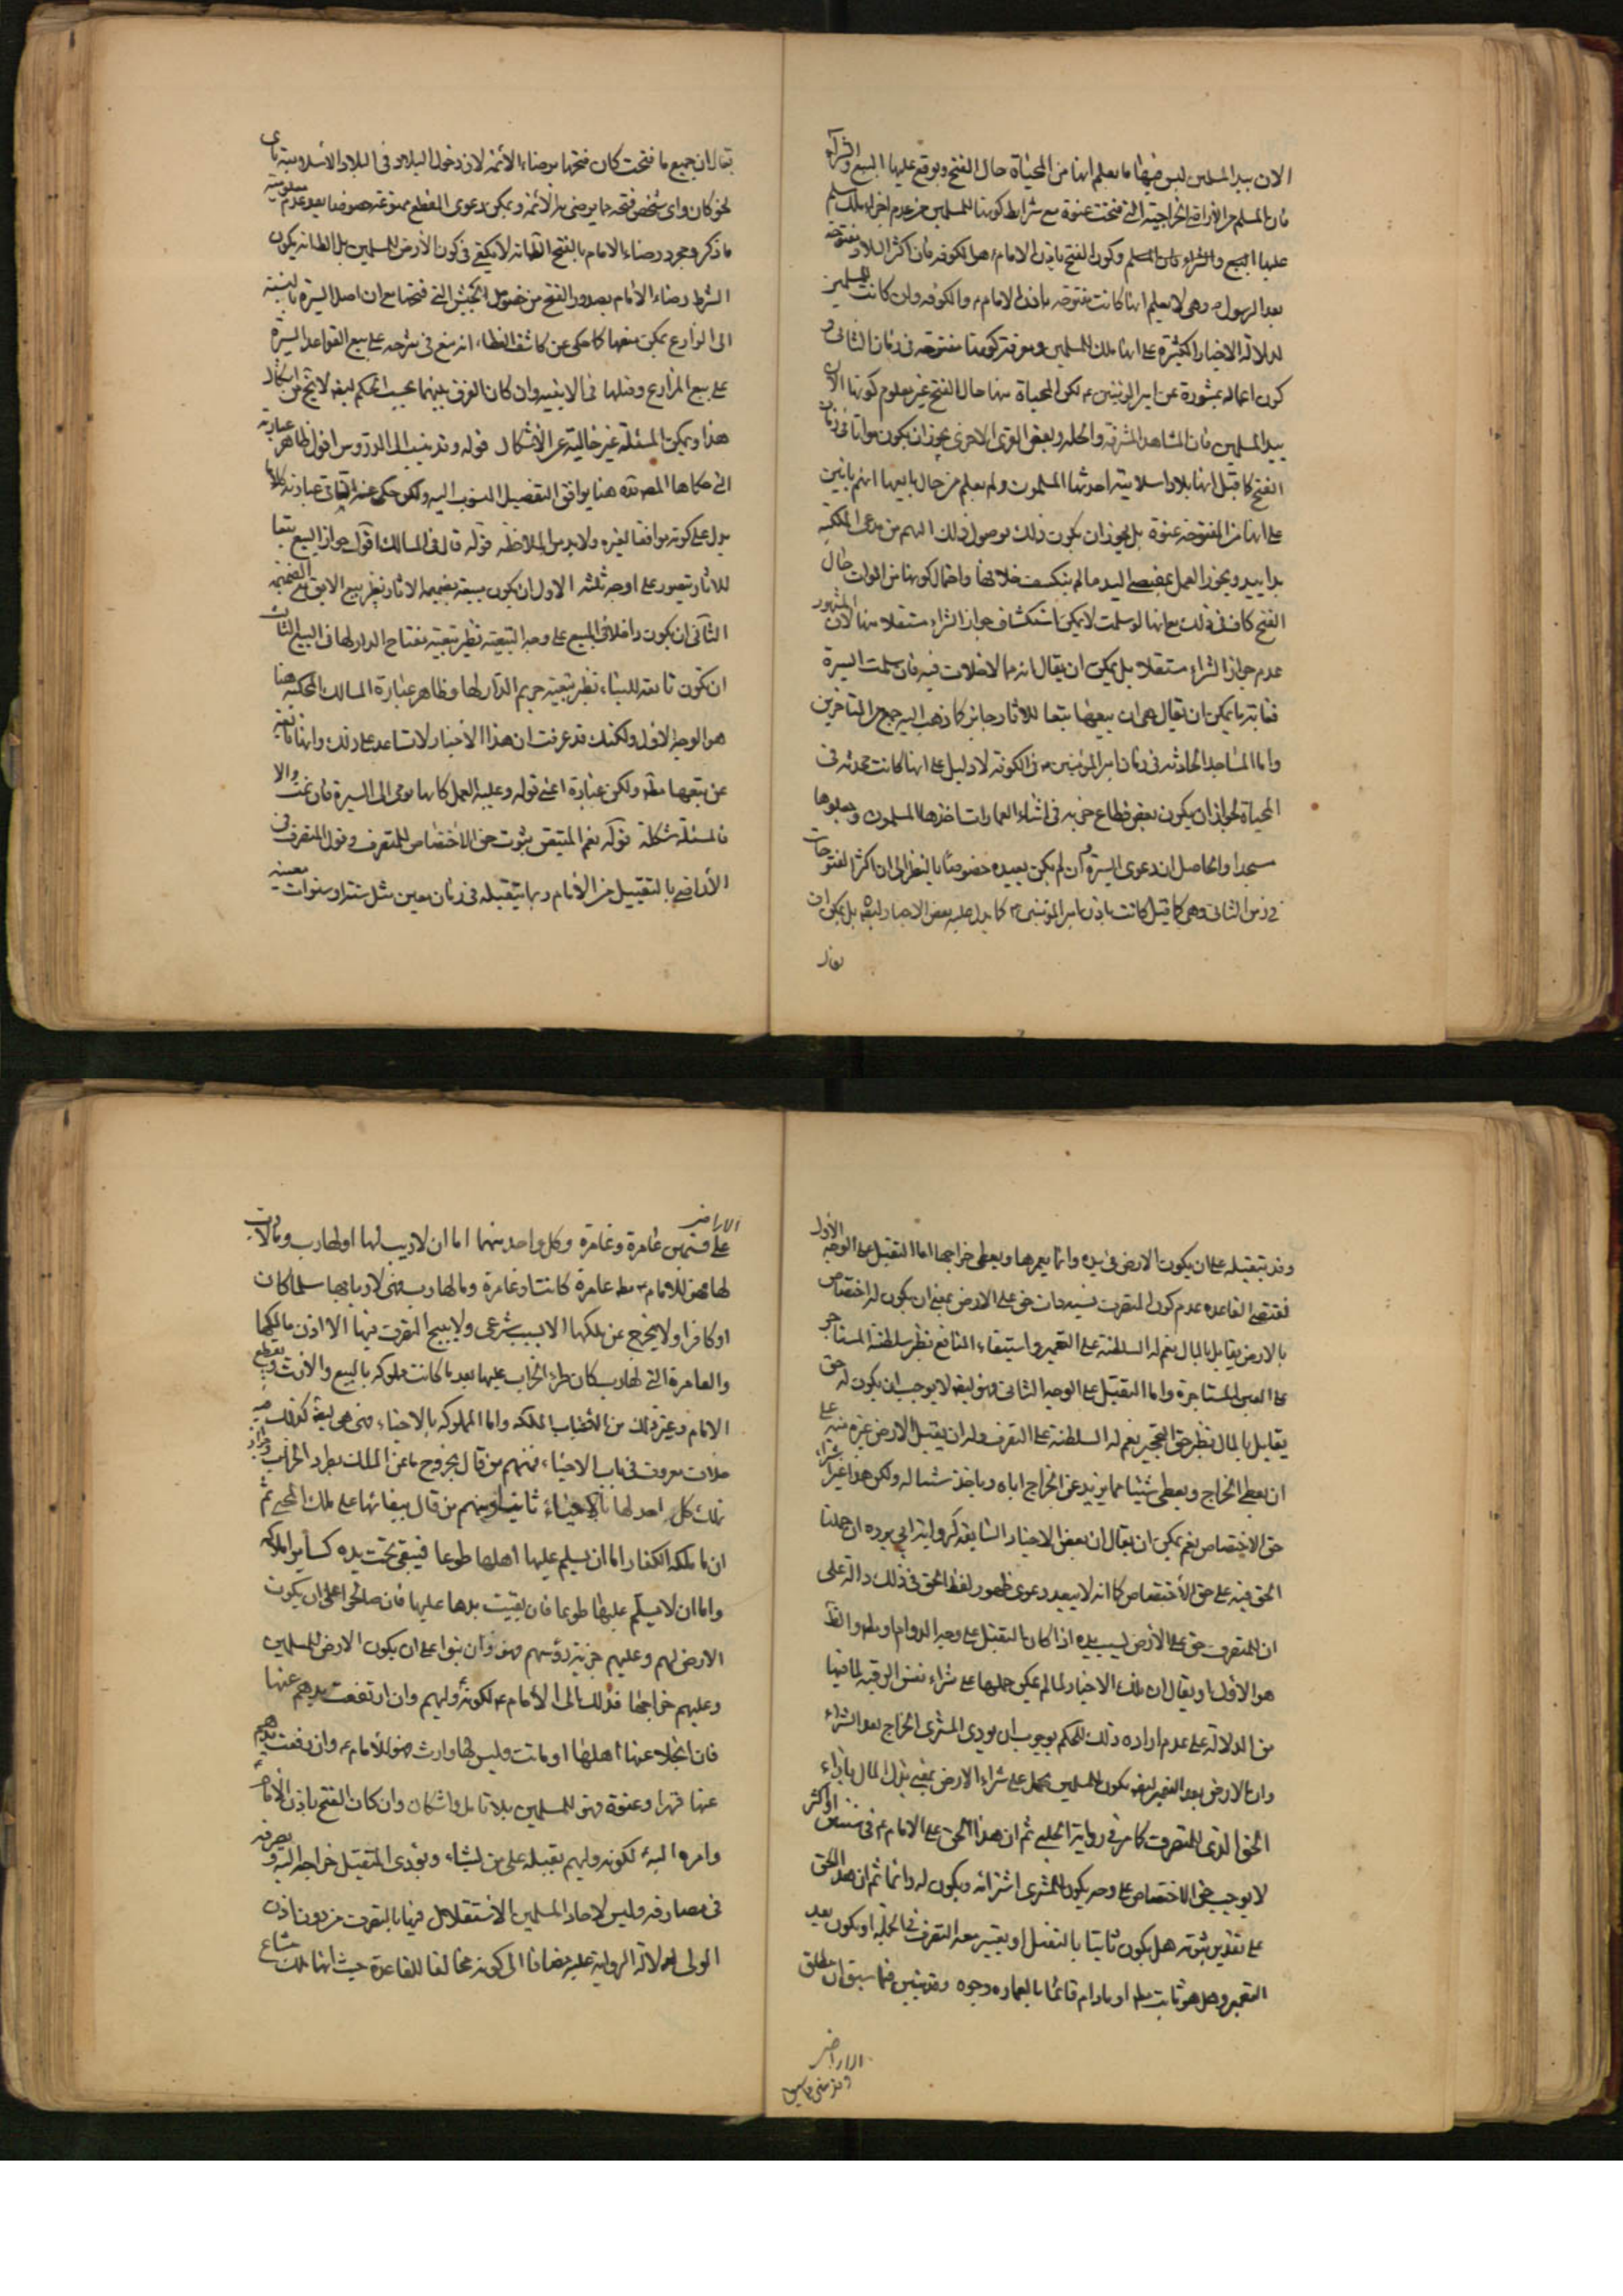 الان بيد المسلمين ليس فيها ما يعلم انها من المحياة حال الفتح و يوقع عليها البيع والشراء
فان المسلم من الأراضي الخراجية التي فتحت عنوة مع شرايط كونها للمسلمين من عدم اجراء ملك مسلم
عليها البيع والشراء وكون الفتح باذن الامام هل الكوفه فان اكثر البلاد مفتوحة
بعد الرسول ص وهي لا يعلم انها كانت مفتوحه باذن الامام ع والكوفه وان كانت للمسلمين
لدلالة الاخبار الكثيرة على انها ملك للمسلمين و معرفة كونها مفتوحه في زمان الثاني و
كون اعماله بمشورة عن امير المؤمنين ع لكن المحياة منها حال الفتح غير معلوم كونها الآن
بيد المسلمين فان المشاهد المشرفة والحله و بعض القرى الاخرى يجوز ان يكون مواتا في زمان
الفتح كما قيل انها بلاد اسلامية احدثها المسلمون ولم يعلم من حال بايعها انهم بانين
على انها من المفتوحة عنوة بل يجوز ان يكون ذلك بوصول ذلك اليهم من مدعى الملكية
يدا بيد و يجوز العمل بمقتضى اليد ما لم ينكشف خلافها و احتمال كونها من الموات حال
الفتح كاف في ذلك مع انها لو سلمت لا يمكن استكشاف جواز الشراء مستقلا منها لان المشهور
عدم جواز الشراء مستقلا بل يمكن ان يقال انه مما لا خلاف فيه فان سلمت السيرة
فغاية ما يمكن ان يقال هي ان بيعها تبعا للاثار جايز كما ذهب اليه جمع من المتأخرين
واما المساجد الحادثه في زمان امير المؤمنين ع في الكوفه لا دليل على انها كانت محدثه في
المحياة لجواز ان يكون بعض قطاع خربه في اثناء العمارات اخذها المسلمون و جعلوها
مسجدا والحاصل ان دعوى السيرة و ان لم يكن بعيده خصوصا بالنظر الى ان اكثر الفتوحات
في زمن الثاني وهي كما قيل كانت باذن امير المؤمنين ع كما يدل عليه بعض الاخبار ايضا بل يمكن ان
يقال
يقال ان جميع ما فتحت كان فتحها برضاء الأئمة لان دخول البلاد في البلاد الاسلامية باى
نحو كان واى شخص فتحه مما يرضى به الأئمة و يمكن دعوى القطع ممنوعة خصوصا بعد عدم معلومية
ما ذكر و مجرد رضاء الامام بالفتح الظ انه لا يكفي في كون الأرض للمسلمين بل الظ انه يكون
الشرط رضاء الامام بصدور الفتح من خصوص الجيش التي فتحها مع ان اصل السيرة بالنسبة
الى المزارع يمكن منعها كما حكى عن كاشف الغطاء انه منع في شرحه على بيع القواعد السيرة
على بيع المزارع و نقلها في الابنية وان كان الفرق بينهما بحسب الحكم ايضا لا يخ من اشكال
هذا و يمكن المسئلة غير خالية عن الاشكال قوله و قد ينسب الى الدروس اقول ظاهر عبارته
التي حكاها المصنف هنا يوافق التفصيل المنسوب اليه ولكن حكى عنه الثاني عبارته كلاما
يدل على كونه موافقا لغيره ولا بد من الملاحظه قوله قال في المسالك اقول جواز البيع تبعا
للاثار يتصور على اوجه ثلثه الاول ان يكون مبيعة بضميمه الاثار نظير بيع الابق مع الضميمة
الثاني ان يكون داخلا في المبيع على وجه التبعية نظير تبعية مفتاح الدار لها في البيع الثالث
ان تكون تابعة للبناء نظير تبعية حريم الدار لها و ظاهر عبارة المسالك المحكية هنا
هو الوجه الاول ولكنك قد عرفت ان هذا الاخبار لا تساعد على ذلك و انها نافية
عن بيعها مط ولكن عبارة اعني قوله و عليه العمل كانها يومى الى السيرة فان تمت والا
فالمسئلة مشكلة قوله نعم المتيقن ثبوت حق الاختصاص للمتصرف اقول المتصرف في
الأراضى بالتقبيل من الامام ربما يتقبله في زمان معين مثل سنة او سنوات معينه
وقد يتقبله على ان يكون الارض في يده دائما يعمرها و يعطى خراجها اما التقبيل على الوجه الأول
فمقتضى القاعده عدم كون المتصرف فيه ذات حق على الارض بمعنى ان يكون له اختصاص
بالارض يقابل بالمال نعم له السلطنة على التعمير و استيفاء المنافع نظير سلطنة المستأجر
على العين المستاجرة و اما التقبيل على الوجه الثاني فهو ايضا لا يوجب ان يكون له حق
يقابل بالمال نظير حق التحجير نعم له السلطنة على التصرف و له ان يقبل الارض غيره منه على
ان يعطى الخراج و يعطى شيئا مما يزيد عن الخراج اياه و ياخذ شيئا له ولكن هذا غير شراء
حق الاختصاص نعم يمكن ان يقال ان بعض الاخبار السابقه كرواية ابي برده ان حملنا
الحق فيه على حق الاختصاص كما انه لا يبعد دعوى ظهور لفظ الحق في ذلك دالة على
ان للمتصرف حق على الارض بسبب يده اذا كان بالتقبيل على وجه الدوام او مط والظ
هو الاول او يقال ان تلك الاخبار لما لم يمكن حملها على شراء نفس الرقبة لما فيها
من الدلالة على عدم اراده ذلك للحكم بوجوب ان يودى المشترى الخراج بعد الشراء
وان الارض بعد التعمير ايضا يكون للمسلمين يحمل على شراء الارض بمعنى بذل المال بازاء
الحق الذى للمتصرف كما مر في رواية الحلبي ثم ان هذا الحق على الامام ع في سنتين او اكثر
لا يوجب حق الاختصاص على وجه يكون للمشترى اشترائه و يكون له دائما ثم ان هذا الحق
على تقدير ثبوته هل يكون ثابتا بالتقبيل او يعتبر معه التصرف في الجملة او يكون بعد
التعمير و هل هو ثابت مط او مادام قائما بالعماره وجوه وقد تبين فيما سبق ان مطلق
الاراضى
الاراضى
على قسمين عامرة و غامرة و كل واحد منهما اما ان لا رب لها او لها رب و ما لا رب
لها فهو للامام ع مط عامرة كانت او غامرة و ما لها رب فهى لاربابها مسلما كان
او كافرا ولا يخرج عن ملكها الا بسبب شرعى ولا يبيح التصرف فيها الا اذن مالكها
والغامرة التي لها رب كان طرء الخراب عليها بعد ما كانت مملوكه بالبيع والارث و بقطع
الامام و غير ذلك من الاسباب المملكه و اما المملوكه بالاحياء فهى هى ايضا كذلك فيه
خلاف معروف في باب الاحياء فمنهم من قال بخروجها عن الملك بطرد الخراب و جواز
تملك كل احد لها بالاحياء ثانيا و منهم من قال ببقائها على ملك المحيي ثم
ان ما ملكه الكفار اما ان يسلم عليها اهلها طوعا فيبقى تحت يده كساير املاكه
واما ان لا يسلم عليها طوعا فان بقيت يدها عليها فان صالحوا على ان يكون
الارض لهم و عليهم جزية رؤسهم فهو وان بنوا على ان يكون الارض للمسلمين
و عليهم خراجها فذلك الى الامام ع لكونه وليهم وان ارتفعت يدهم عنها
فان انجلا عنها اهلها او ماتت وليس لها وارث فهو للامام ع وان رفعت يدهم
عنها قهرا و عنوة فهو للمسلمين بلا تامل و اشكال وان كان الفتح باذن الامام ع
وامره اليه لكونه وليهم يقبله على من يشاء و يؤدى المتقبل خراجه اليه و يصرفه
في مصارفه وليس لاحاد المسلمين الاستقلال فيها بالتصرف من دون اذن
الولى لدلالة الرواية عليه مضافا الى كونه مخالفا للقاعدة حيث انها ملك مشاع